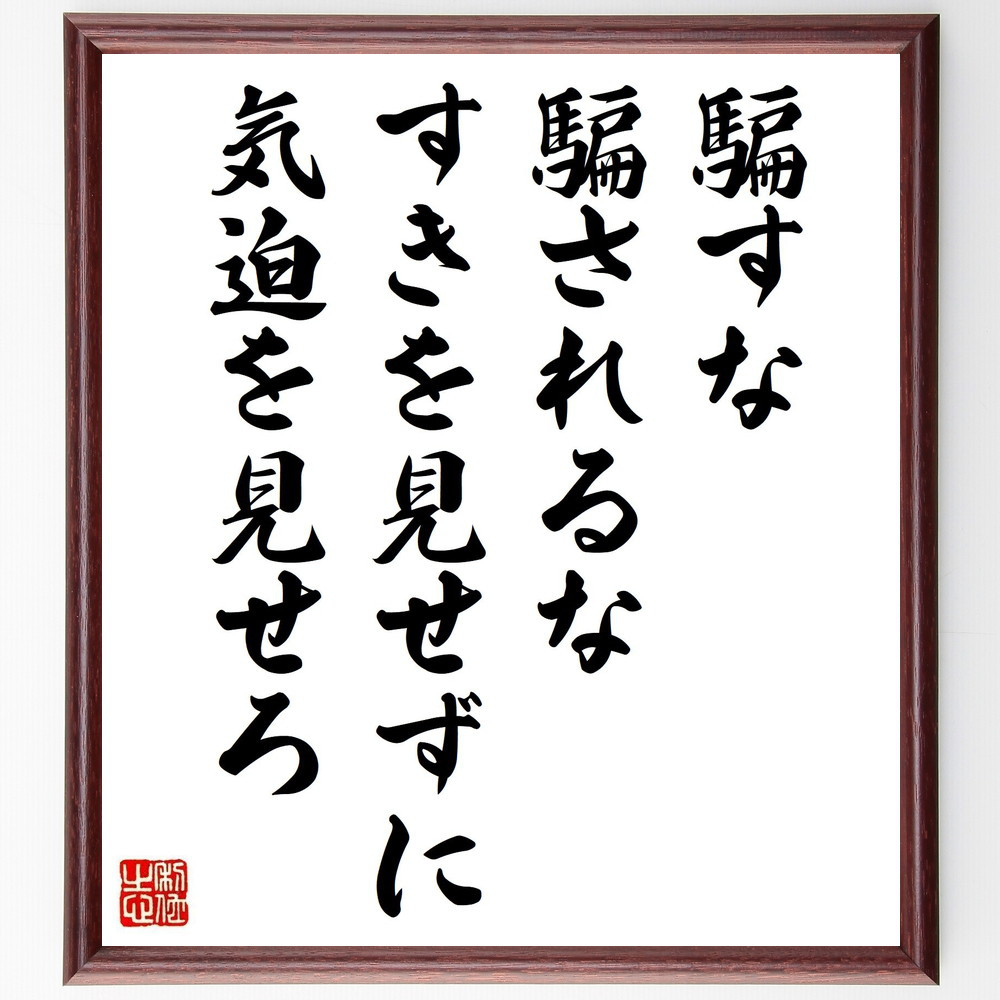 騙すな
騙されるな
すきを見せずに
気迫を見せろ